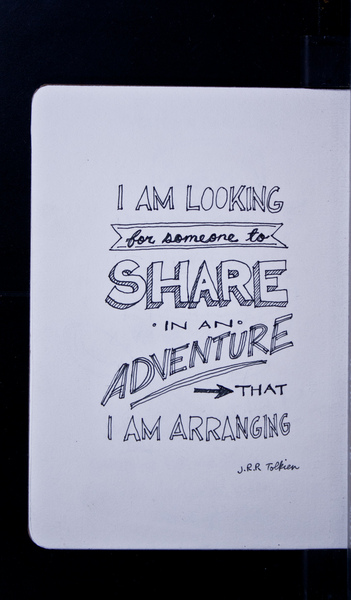 I AM LOOKING
for someone to
SHARE
• IN AN •
ADVENTURE
THAT
I AM ARRANGING
J.R.R Tolkien